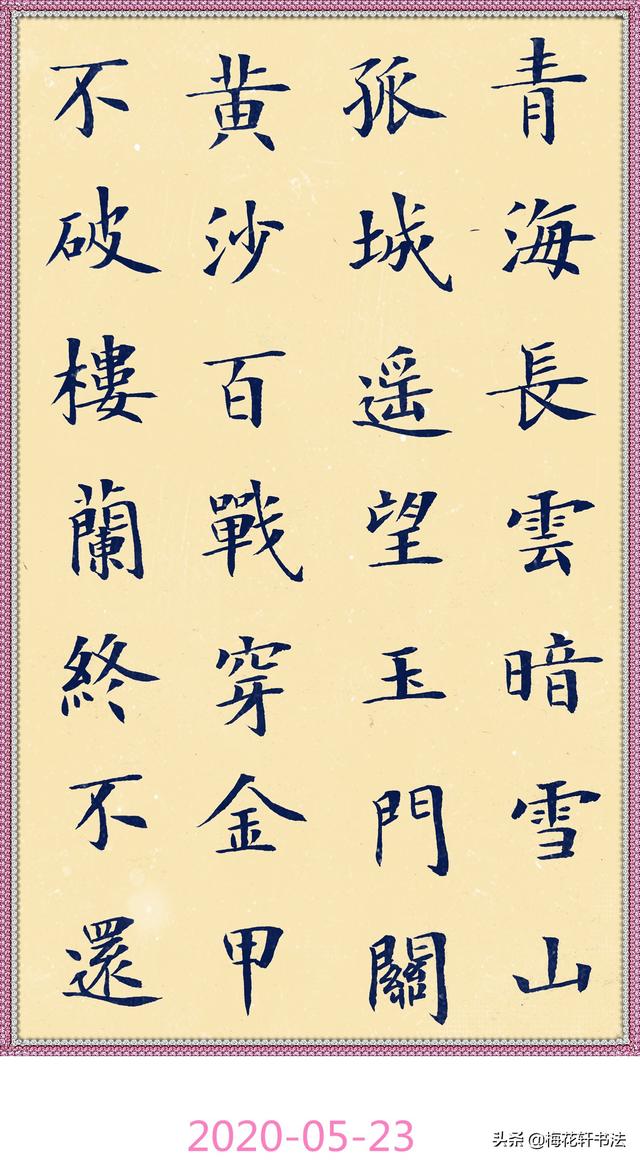 青海長雲暗雪山
孤城遥望玉門關
黄沙百戰穿金甲
不破樓蘭終不還
2020-05-23
头条 @梅花轩书法